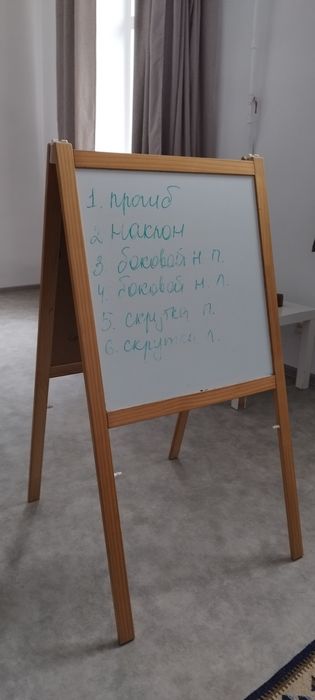 1. прогиб
2 наклон
3. боковой н. п.
4. боковой н. л.
5. скрутка п.
6. скрутка л.